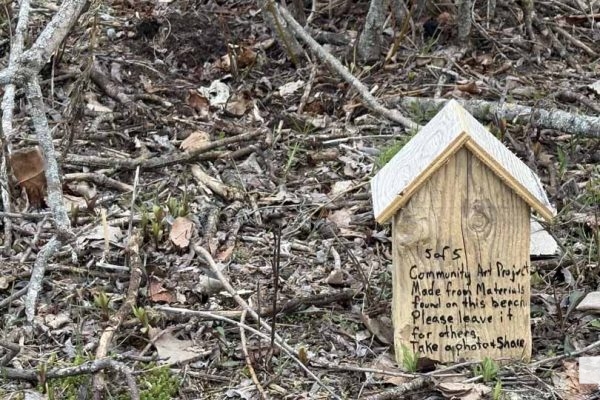 5 of 5
Community Art Project
Made from Materials
found on this beach
Please leave it
for others.
Take a photo & Share